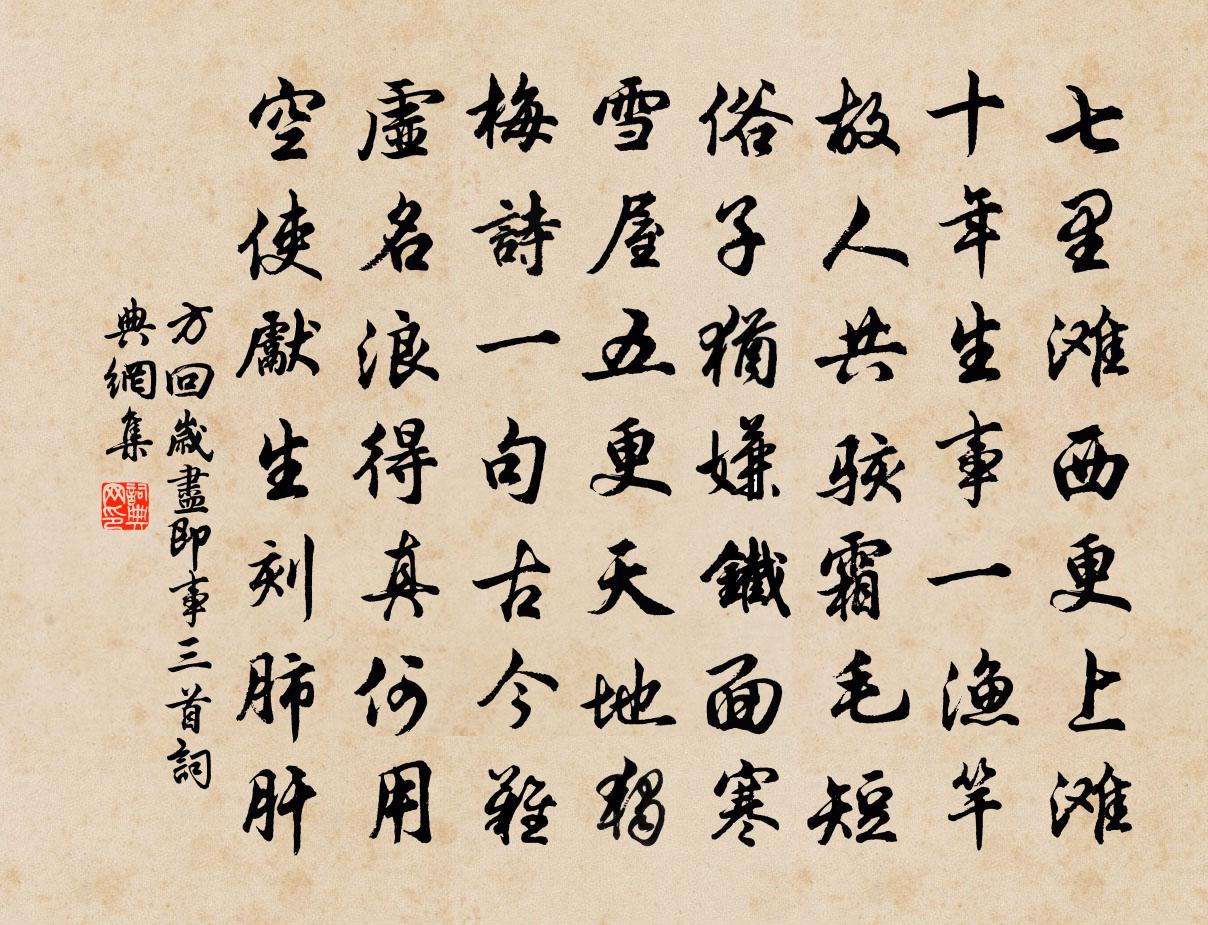 七里滩西更上滩
十年生事一漁竿
故人共骇霜毛短
俗子猶嫌鐵面寒
雪屋五更天地獨
梅詩一句古今難
虛名浪得真何用
空使獻生刻肺肝
方回歲盡即事三首詞
典網集
詞典
网印